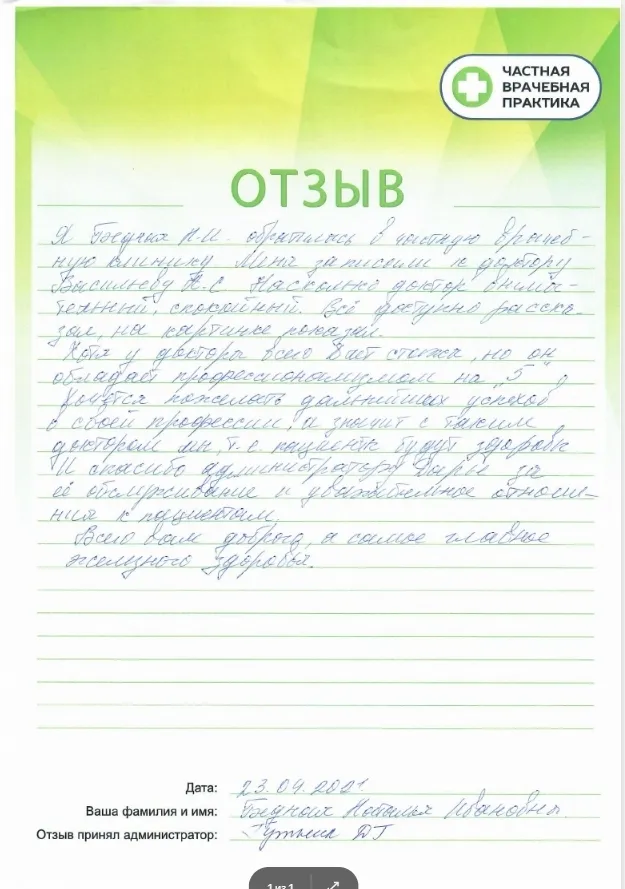 ЧАСТНАЯ
ВРАЧЕБНАЯ
ПРАКТИКА
ОТЗЫВ
Я Н.И. обратилась в частную врачеб-
ную клинику. Меня записали к доктору
Васильеву Н.С. Насколько доктор внима-
тельный, спокойный. Всё доступно расска-
зал, на картинке показал.
Хотя у доктора всего 2 стажа, но он
обладает профессионализмом на "5",
Хочется пожелать дальнейших успехов
в своей профессии, а значит с таким
доктором мы, т.е. пациенты будут здоровы
И спасибо администратору Дарье за
её обслуживание и уважительное отноше-
ния к пациентам.
Всего вам доброго, а самое главное
железного здоровья.
Дата: 23.04.2021
Ваша фамилия и имя: Наталья Ивановна.
Отзыв принял администратор: ДГ
1 из 1